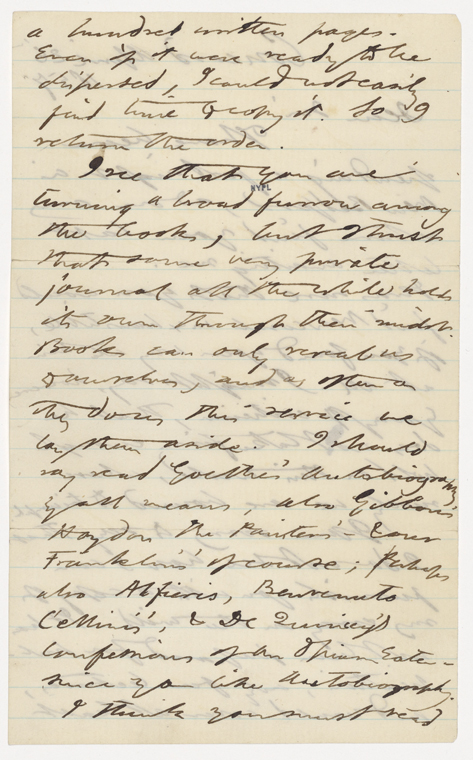 a hundred written pages.
Even if it were ready to be
dispersed, I could not easily
find time to copy it. So I
return the order.
I see that you are
NYPL
turning a broad furrow among
the books, but I trust
that some very private
journal all the while holds
its own through their midst.
Books can only reveal us
to ourselves, and as often as
they do us this service we
lay them aside. I should
say read Goethe's Autobiography
by all means, also Gibbon's
Haydon the Painter's - & our
Franklin's of course; perhaps
also Alfieris, Benvenuto
Cellini's, & De Quincey's
Confessions of an Opium Eater -
since you like Autobiography.
I think you must read